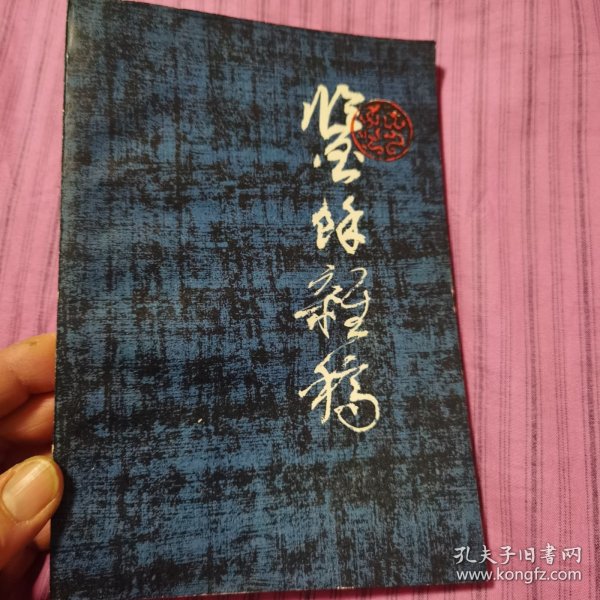 鑒餘雜稿
孔夫子旧书网
www.kongfz.com